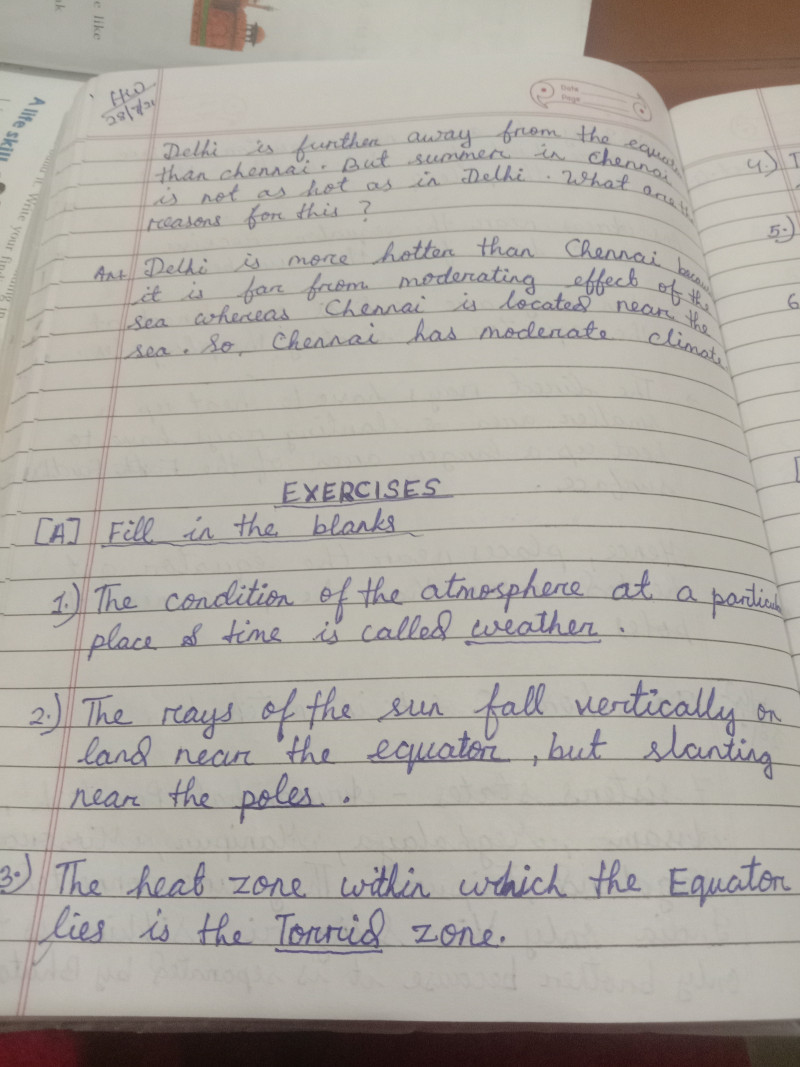 e like
nk
A life skill
Write your
28/7/21
Date
Page
Delhi is further away from the
than chennai. But summer in Chennai
is not as hot as in Delhi. What are
reasons for this ?
Ans Delhi is more hotter than Chennai
it is far from moderating effect of the
sea whereas Chennai is located near the
sea. So, Chennai has moderate climate
EXERCISES
[A] Fill in the blanks
1.) The condition of the atmosphere at a
place & time is called weather.
2.) The rays of the sun fall vertically on
land near the equator, but slanting
near the poles.
3.) The heat zone within which the Equator
lies is the Torrid zone.
4.)
5.)
6